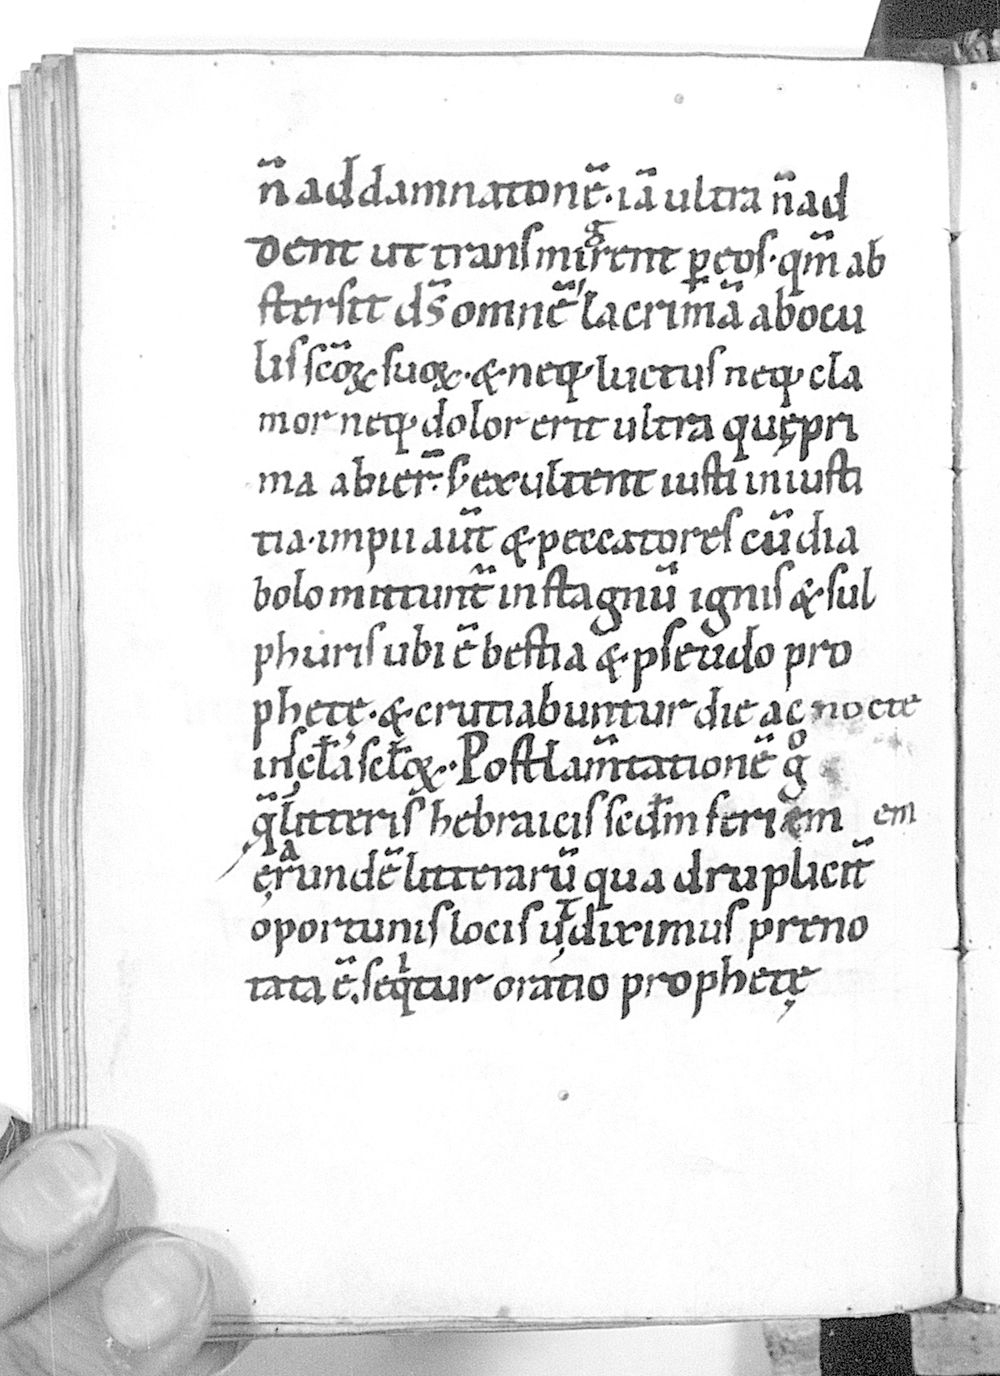 n̄ ad damnatonē· iā ultra n̄ ad
dent ut transmigrent ꝑ eos· qm̄ ab
stersit ds̄ omnē lacrimā ab ocu
lis scōꝝ suoꝝ· & neq; luctus neq; cla
mor neq; dolor erit ultra quę pri
ma abier̄. s; exultent iusti in iusti
tia· impii aūt & peccatores cū dia
bolo mittunt̄ in stagnū ignis & sul
phuris ubi ē bestia & pseudo pro
phetę· & crutiabuntur die ac nocte
in scła scłoꝝ· Post lam̄tationē gͦ
q̄ litteris hebraicis scd̄m seriem em
erundē litterarū quadruplicit̄
oportunis locis ut diximus preno
tata ē. seqͥtur oratio prophetę